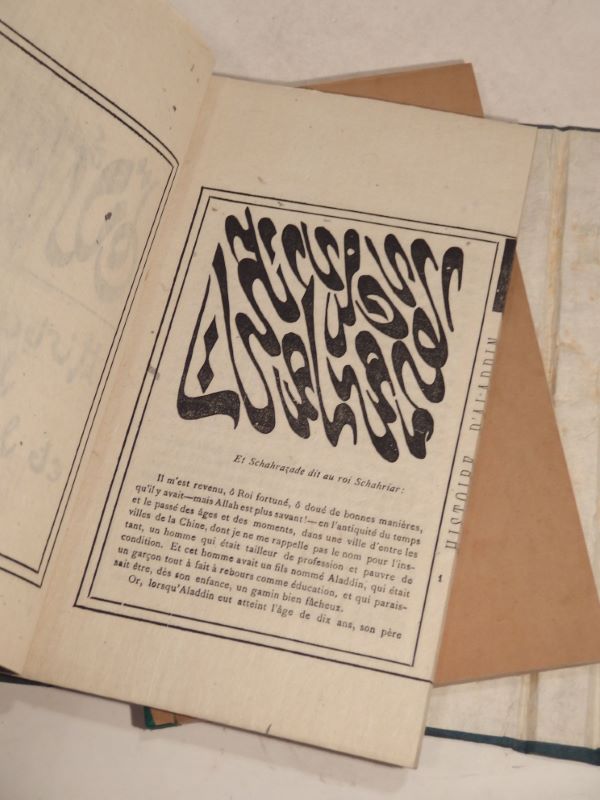 Et Schahrazade dit au roi Schahriar:
Il m'est revenu, ô Roi fortuné, ô doué de bonnes manières,
qu'il y avait—mais Allah est plus savant!—en l'antiquité du temps
et le passé des âges et des moments, dans une ville d'entre les
villes de la Chine, dont je ne me rappelle pas le nom pour l'ins-
tant, un homme qui était tailleur de profession et pauvre de
condition. Et cet homme avait un fils nommé Aladdin, qui était
un garçon tout à fait à rebours comme éducation, et qui parais-
sait être, dès son enfance, un gamin bien fâcheux.
Or, lorsqu'Aladdin eut atteint l'âge de dix ans, son père
HISTOIRE D'ALADDIN
1